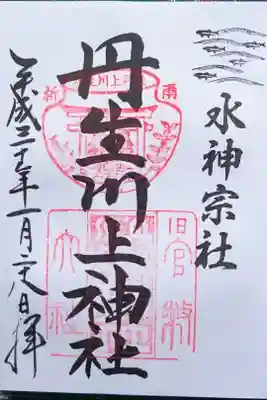 水神宗社
丹生川上神社
平成三十年一月二八日拝
旧官幣
大社